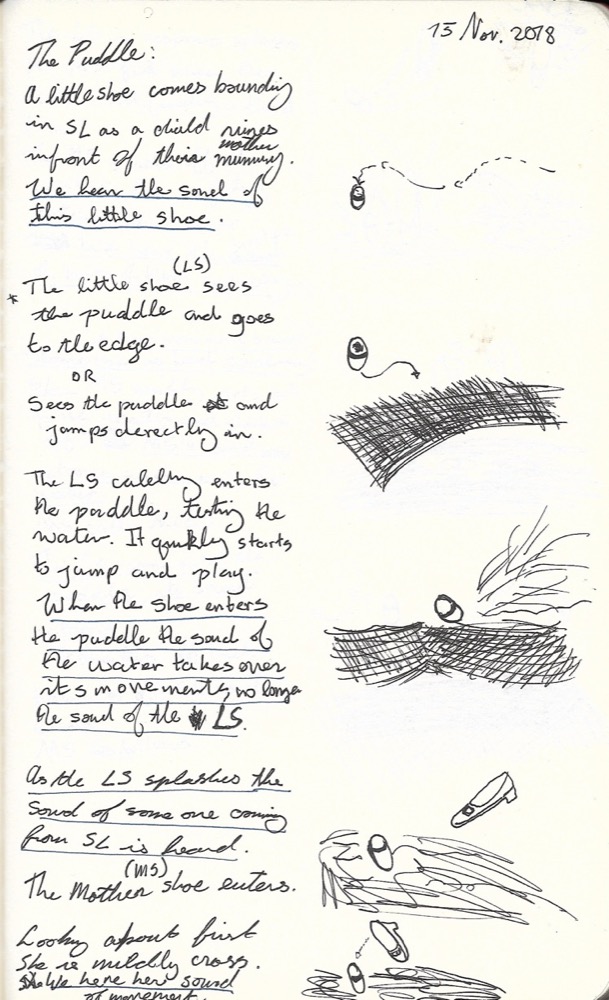 15 Nov. 2018
The Puddle:
A little shoe comes bounding
in SL as a child runes
infront of their mother mummy.
We hear the soud of
this little shoe.
(LS)
* The little shoe sees
the puddle and goes
to the edge.
OR
Sees the puddle and
jumps derectly in.
The LS enters
the puddle, testing the
water. It quikly starts
to jump and play.
When the shoe enters
the puddle the soud of
the water takes over
its movements, no longer
the soud of the LS.
As the LS splashes the
Soud of some one coming
from SL is heard.
(MS)
The Mother shoe enters.
Looky about first
She is mildly cross.
We here her sound
of movement.